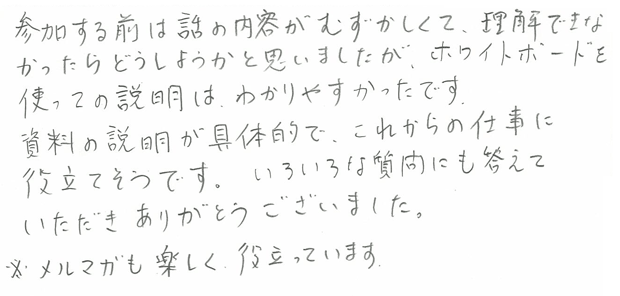 参加する前は話の内容がむずかしくて、理解できな
かったらどうしようかと思いましたが、ホワイトボードを
使っての説明は、わかりやすかったです。
資料の説明が具体的で、これからの仕事に
役立てそうです。いろいろな質問にも答えて
いただきありがとうございました。
※メルマガも楽しく、役立っています。